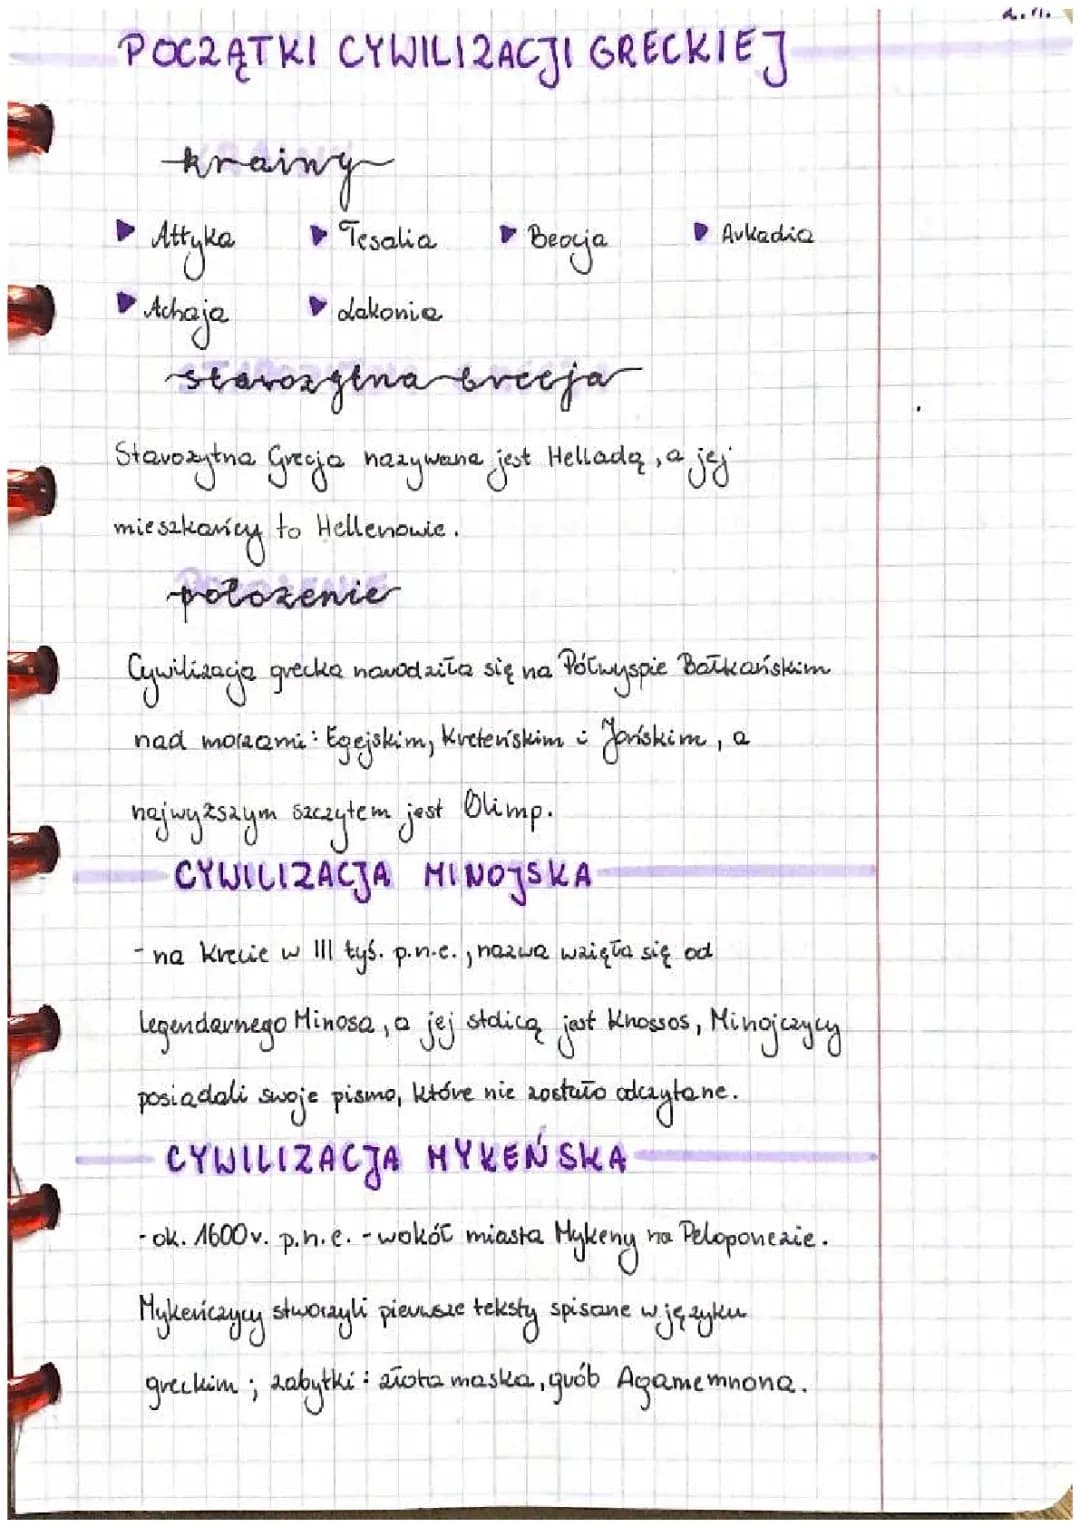 POCZĄTKI CYWILIZACJI GRECKIEJ
krainy
Attyka Tesalia Beocja Arkadia
Achaja Lakonia
starożytna Grecja
Starożytna Grecja nazywana jest Helladą, a jej
mieszkańcy to Hellenowie.
położenie
Cywilizacja grecka narodziła się na Półwyspie Bałkańskim
nad morzami: Egejskim, Kreteńskim i Jońskim, a
najwyższym szczytem jest Olimp.
CYWILIZACJA MINOJSKA
- na Krecie w III tyś. p.n.e., nazwa wzięła się od
legendarnego Minosa, a jej stolicą jest Knossos, Minojczycy
posiadali swoje pismo, które nie zostało odczytane.
CYWILIZACJA MYKEŃSKA
- ok. 1600 r. p.n.e. - wokół miasta Mykeny na Peloponezie.
Mykeńczycy stworzyli pierwsze teksty spisane w języku
greckim; zabytki: złota maska, grób Agamemnona.